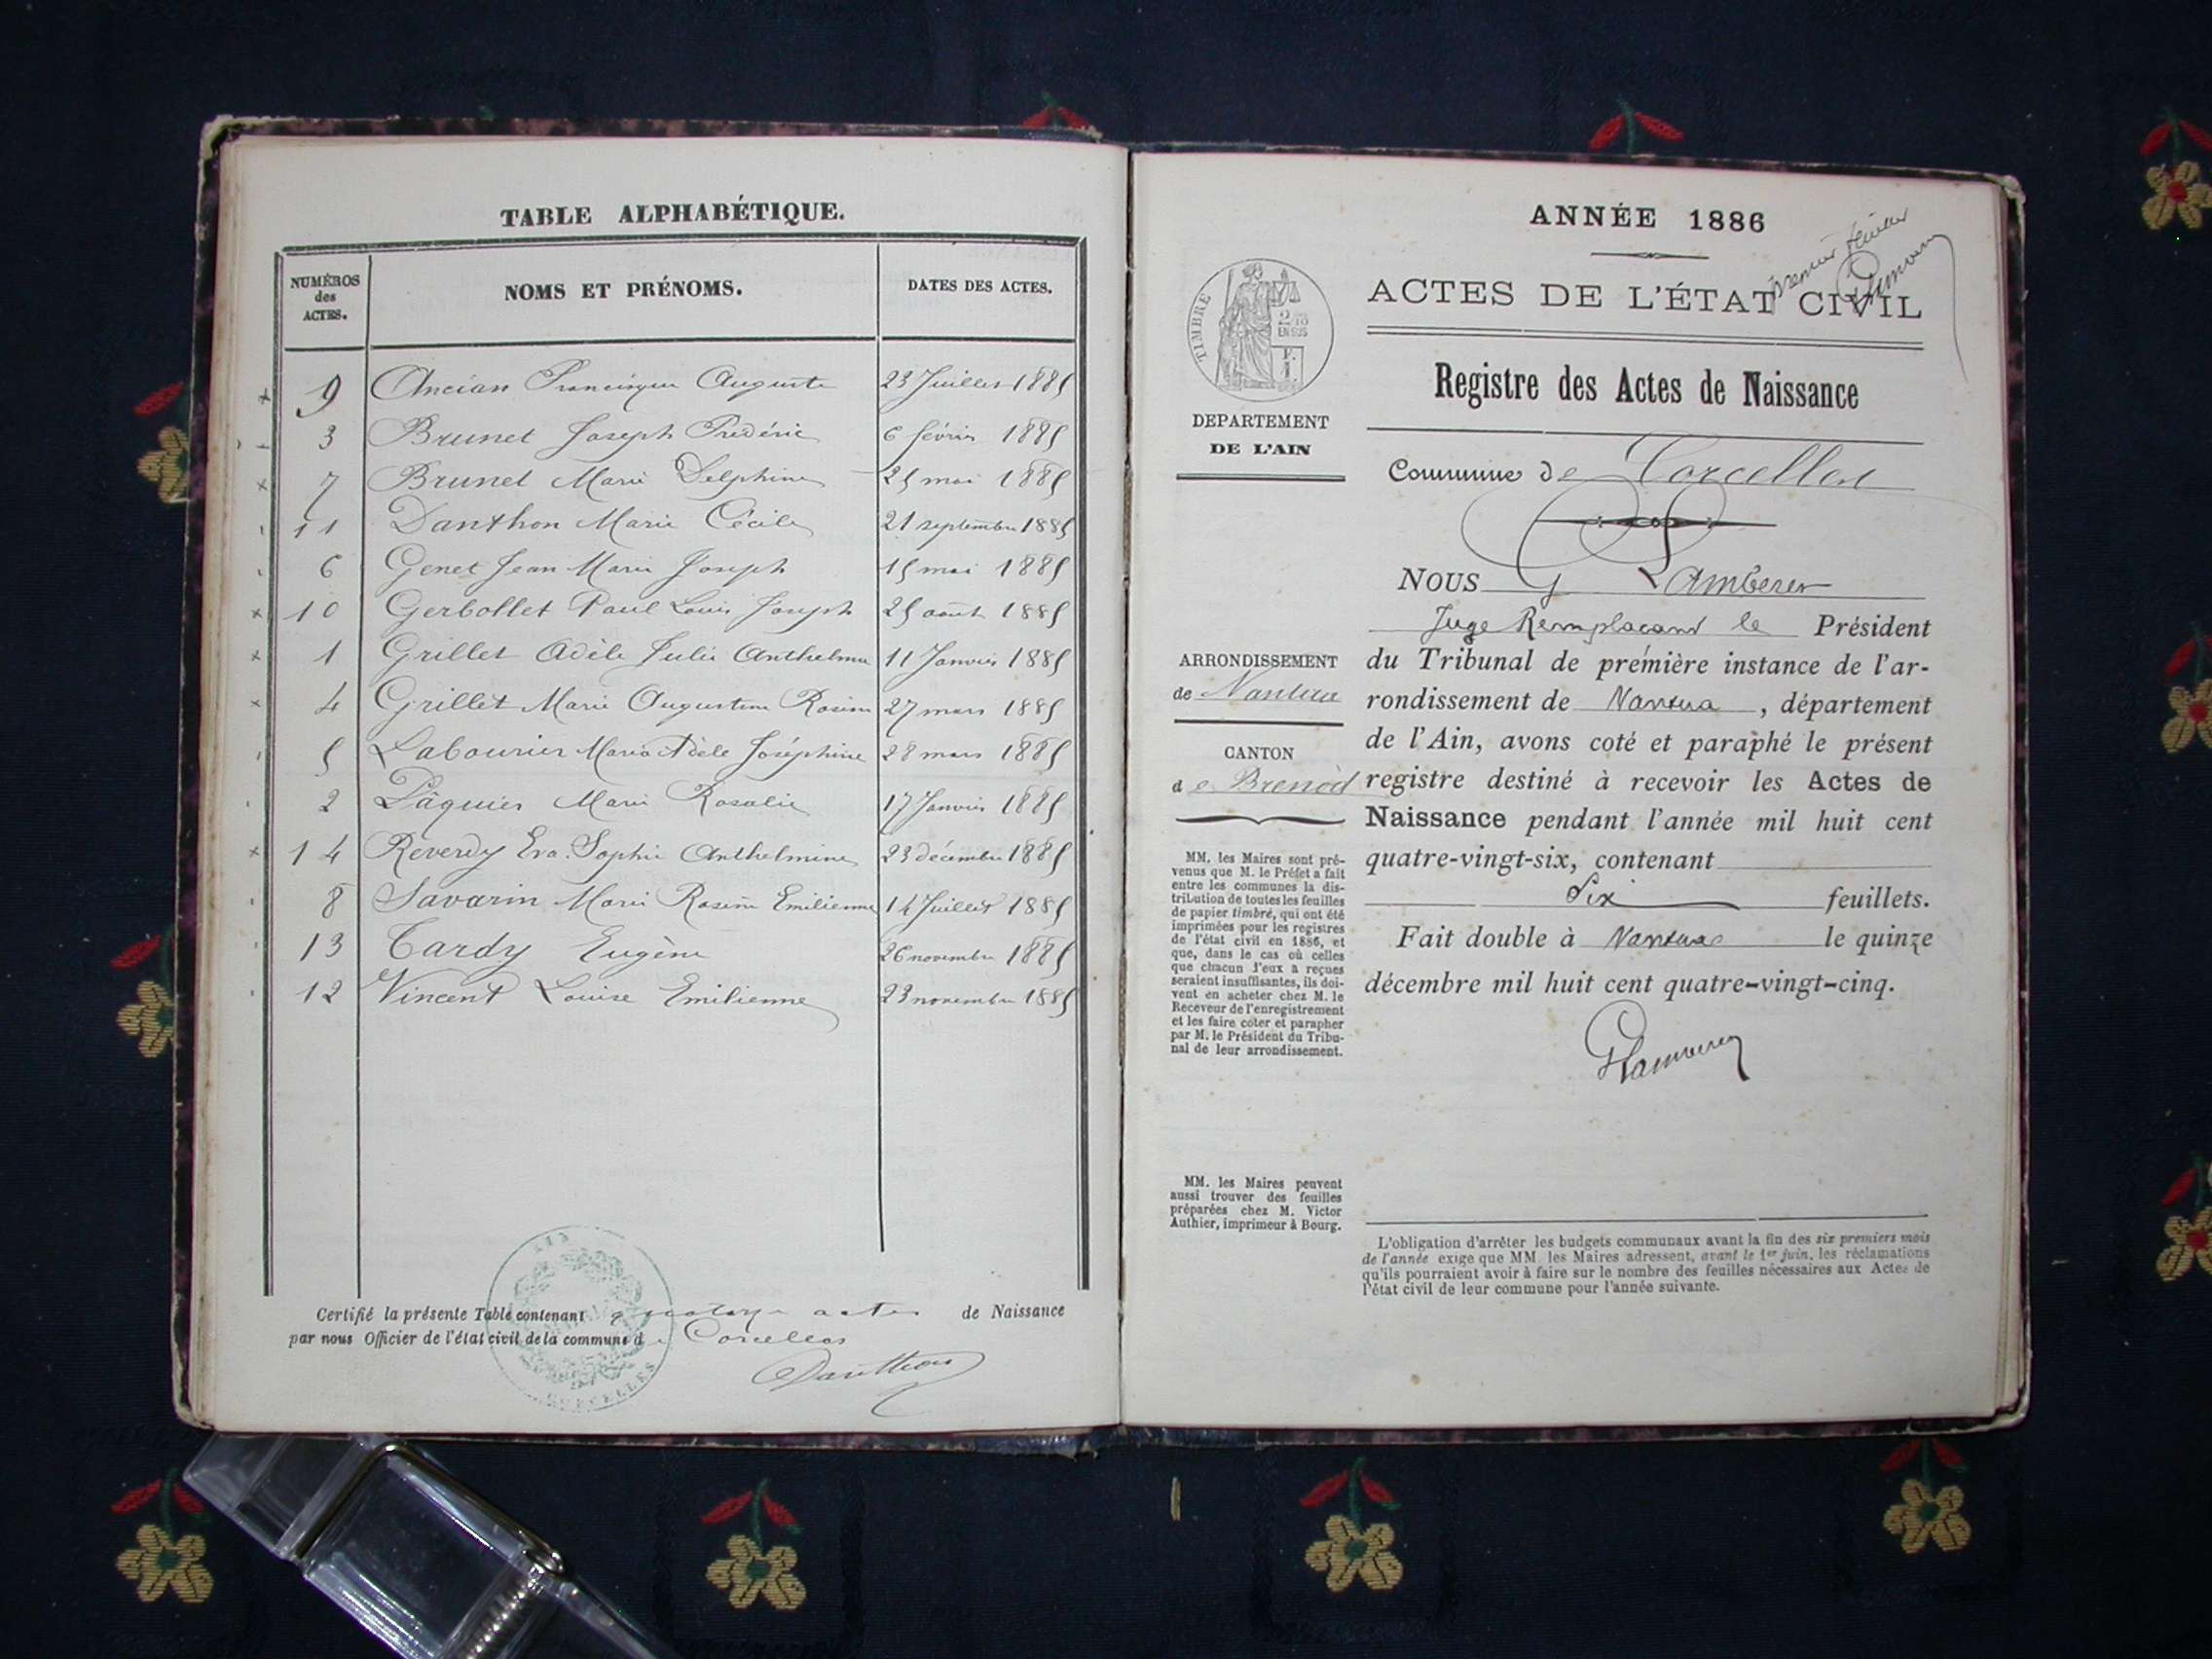 TABLE ALPHABÉTIQUE.
NUMÉROS des ACTES.
NOMS ET PRÉNOMS.
DATES DES ACTES.
9 Ancian Francisque Auguste 23 Juillet 1885
3 Brunet Joseph Frédéric 6 février 1885
7 Brunet Marie Delphine 25 mai 1885
11 Danthon Marie Cécile 21 septembre 1885
6 Genet Jean Marie Joseph 15 mai 1885
10 Gerbollet Paul Louis Joseph 25 août 1885
1 Grillet Adèle Julie Anthelme 11 Janvier 1885
4 Grillet Marie Augustine Rosine 27 mars 1885
5 Labourier Maria Adèle Joséphine 28 mars 1885
2 Pâquier Marie Rosalie 17 Janvier 1885
14 Reverdy Eva Sophie Anthelmine 23 décembre 1885
8 Savarin Marie Rosine Emilienne 14 Juillet 1885
13 Tardy Eugène 26 novembre 1885
12 Vincent Louise Emilienne 23 novembre 1885
Certifié la présente Table contenant quatorze actes de Naissance
par nous Officier de l'état civil de la commune de Corcelles
Danthon
AIN
CORCELLES
ANNÉE 1886
premier feuillet
ACTES DE L'ÉTAT CIVIL
TIMBRE
2/10 EN SUS
Registre des Actes de Naissance
DEPARTEMENT
DE L'AIN
Commune de Corcelles
NOUS
Juge Remplaçant le Président
ARRONDISSEMENT
de Nantua
du Tribunal de première instance de l'ar-
rondissement de Nantua, département
de l'Ain, avons coté et paraphé le présent
CANTON
de Brenod
registre destiné à recevoir les Actes de
Naissance pendant l'année mil huit cent
quatre-vingt-six, contenant
Six feuillets.
Fait double à Nantua le quinze
décembre mil huit cent quatre-vingt-cinq.
MM. les Maires sont pré-
venus que M. le Préfet a fait
entre les communes la dis-
tribution de toutes les feuilles
de papier timbré, qui ont été
imprimées pour les registres
de l'état civil en 1886, et
que, dans le cas où celles
que chacun d'eux a reçues
seraient insuffisantes, ils doi-
vent en acheter chez M. le
Receveur de l'enregistrement
et les faire coter et parapher
par M. le Président du Tribu-
nal de leur arrondissement.
MM. les Maires peuvent
aussi trouver des feuilles
préparées chez M. Victor
Authier, imprimeur à Bourg.
L'obligation d'arrêter les budgets communaux avant la fin des six premiers mois
de l'année exige que MM. les Maires adressent, avant le 1er juin, les réclamations
qu'ils pourraient avoir à faire sur le nombre des feuilles nécessaires aux Actes de
l'état civil de leur commune pour l'année suivante.